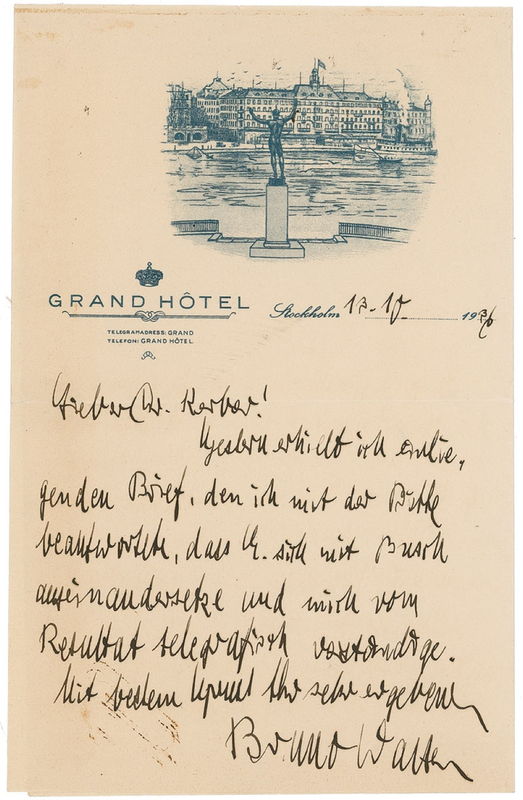 GRAND HÔTEL
TELEGRAMADRESS: GRAND
TELEFON: GRAND HÔTEL
Stockholm 13.10 1936
Lieber Dr. Kerber!
Gestern erhielt ich einlie-
genden Brief, den ich mit der Bitte
beantwortete, dass Er sich mit Busch
auseinandersetze und mich vom
Resultat telegrafisch verständige.
Mit bestem Gruss Ihr sehr ergebener
Bruno Walter